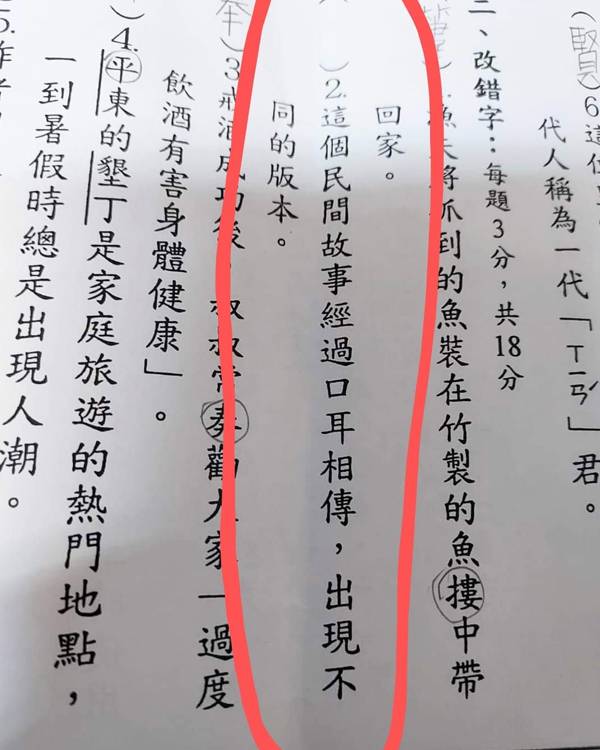 （賢）6.這位
代人稱為一代「ㄒㄧㄢˊ」君。
二、改錯字：每題3分，共18分
）1.漁夫將抓到的魚裝在竹製的魚摟中帶
回家。
）2.這個民間故事經過口耳相傳，出現不
同的版本。
）3.戒酒成功後，叔叔常奏勸大家「過度
飲酒有害身體健康」。
）4.平東的墾丁是家庭旅遊的熱門地點，
一到暑假時總是出現人潮。
5.作者